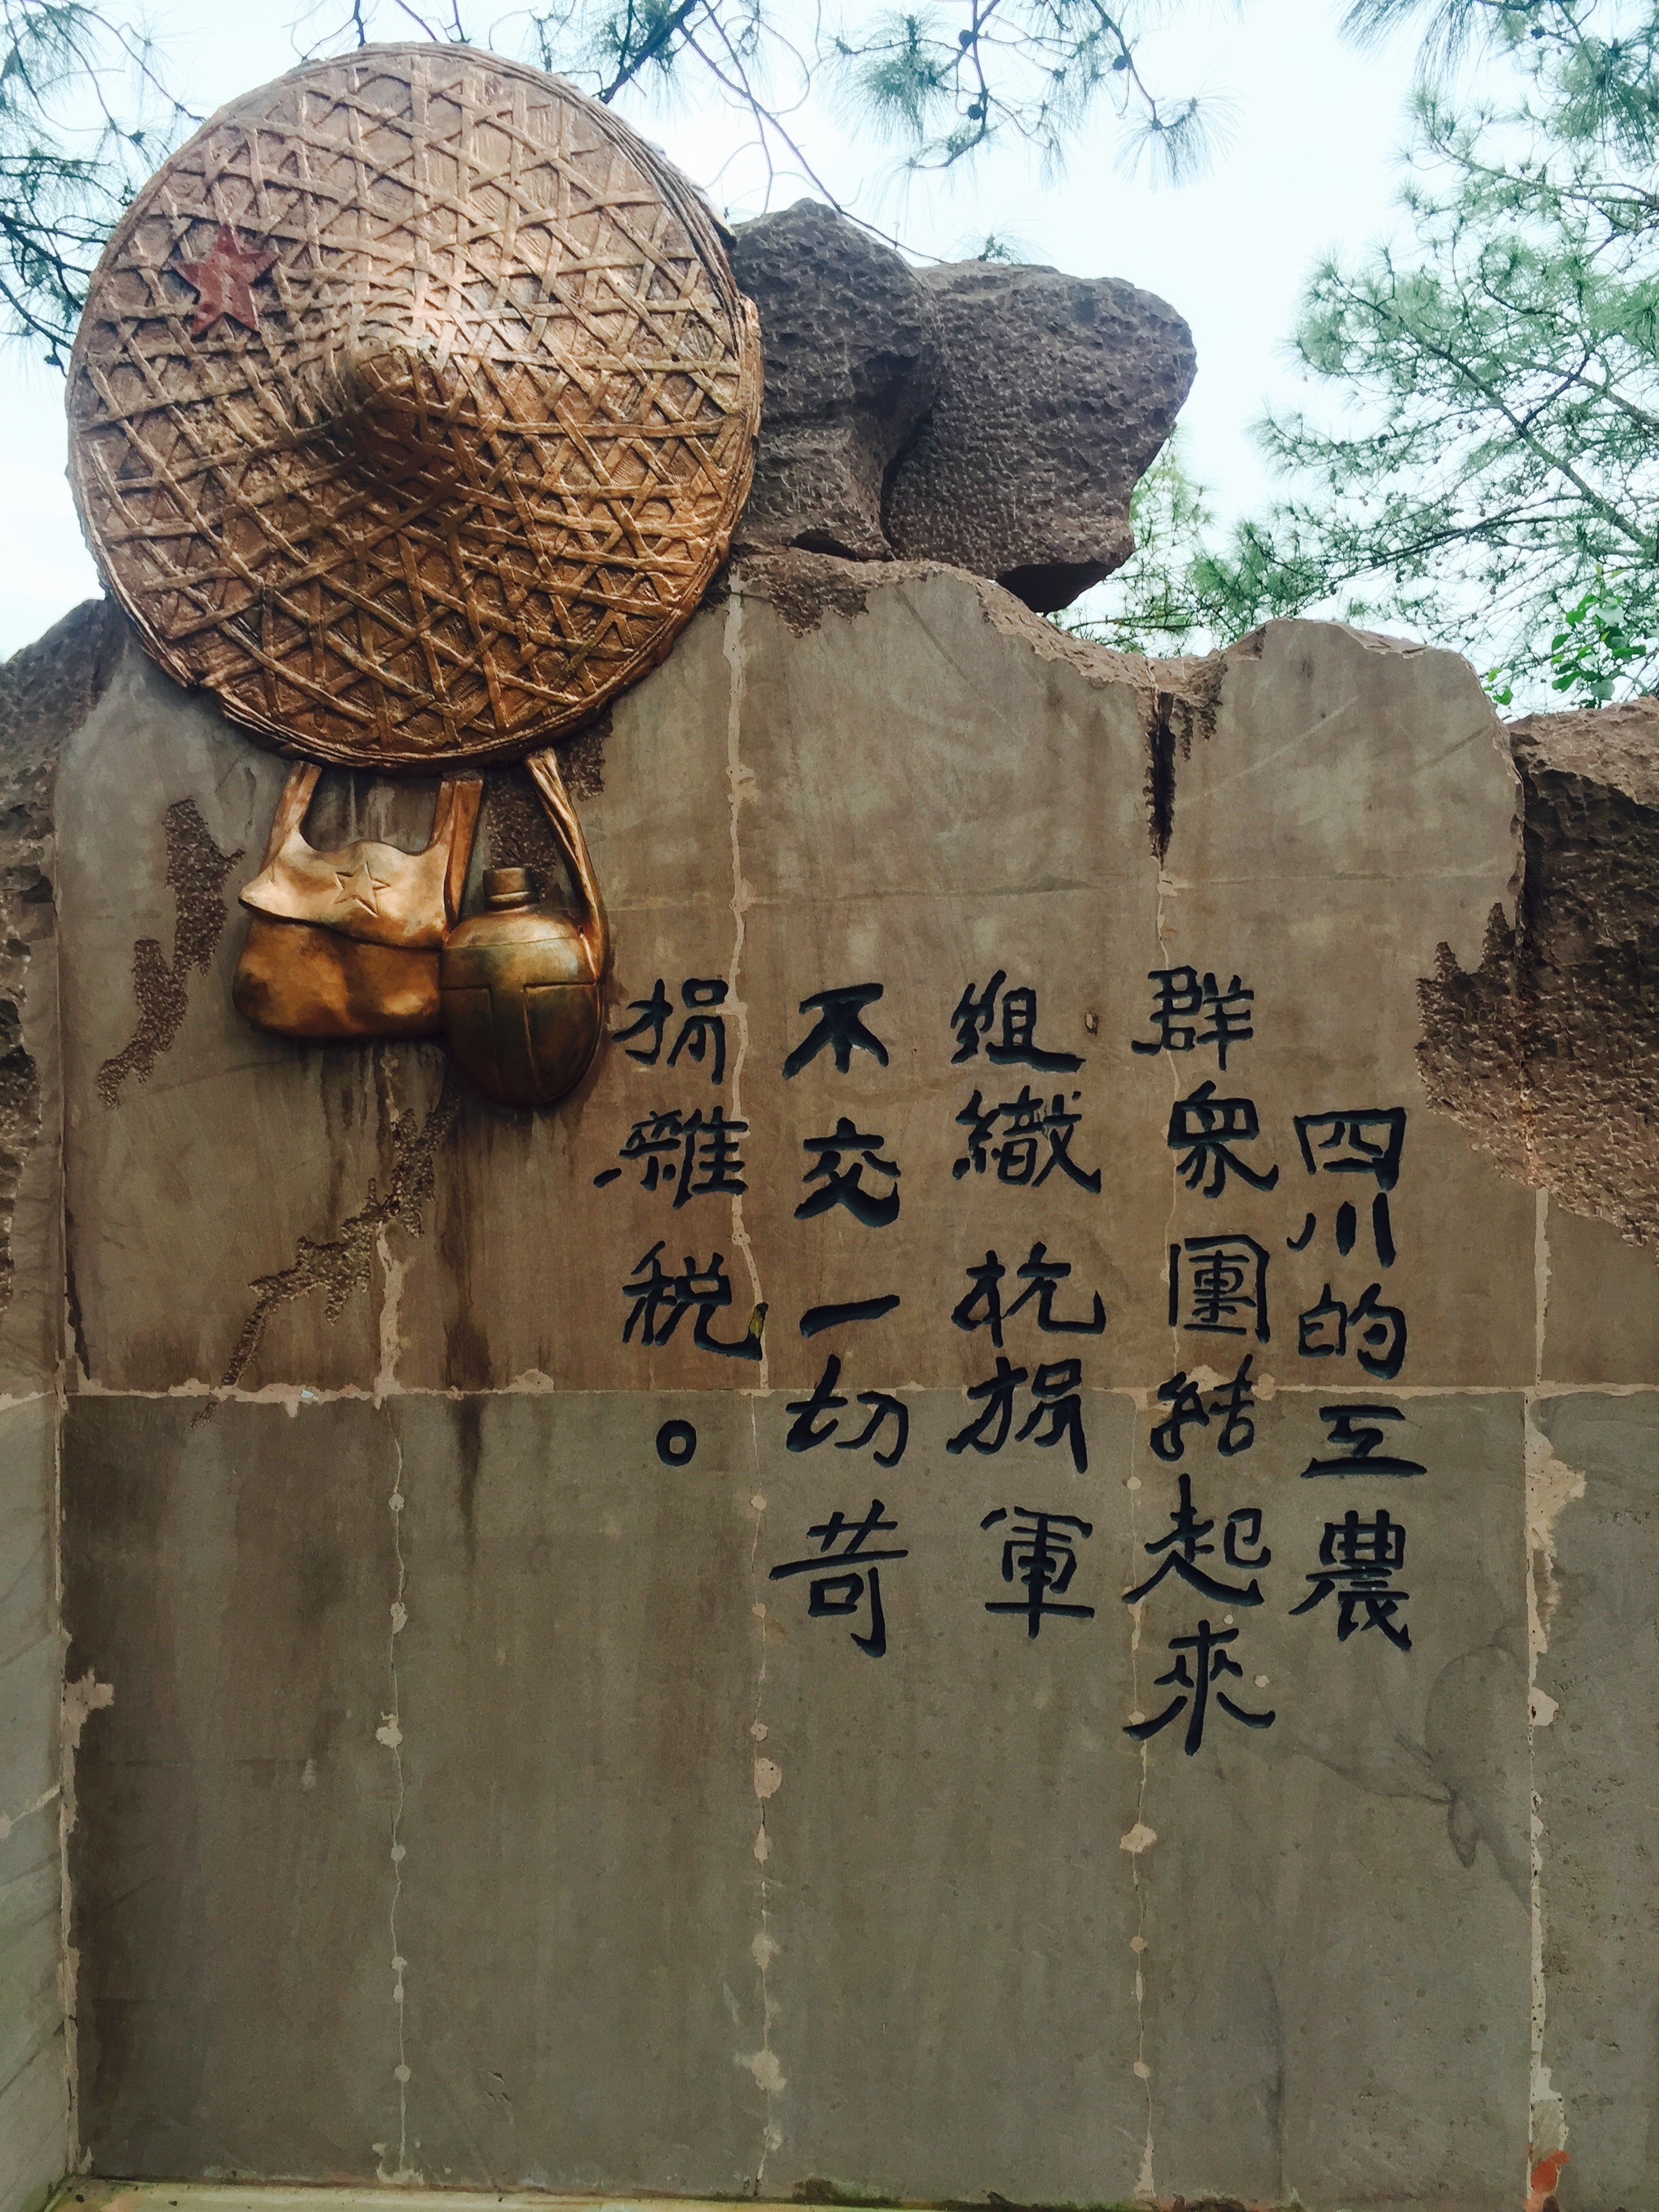 四川的工農
群眾團結起來
組織抗捐軍
不交一切苛
捐雜税。